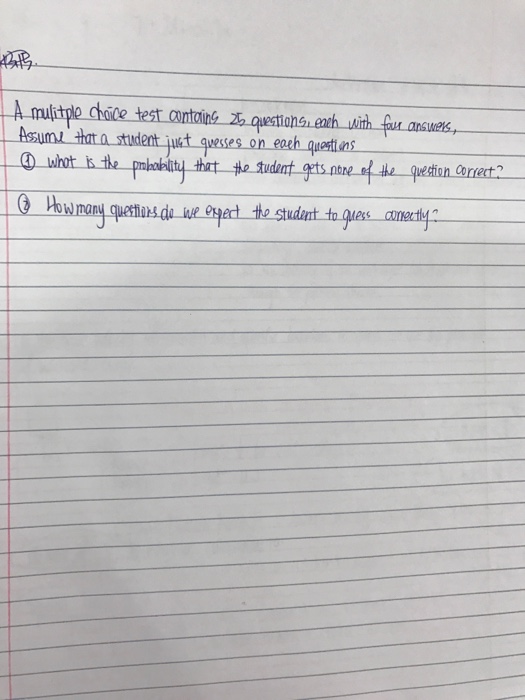 A mulitple choice test contains 25 questions, each with four answers,
Assume that a student just guesses on each questions
① what is the probability that the student gets none of the question correct?
② How many questions do we expect the student to guess correctly?